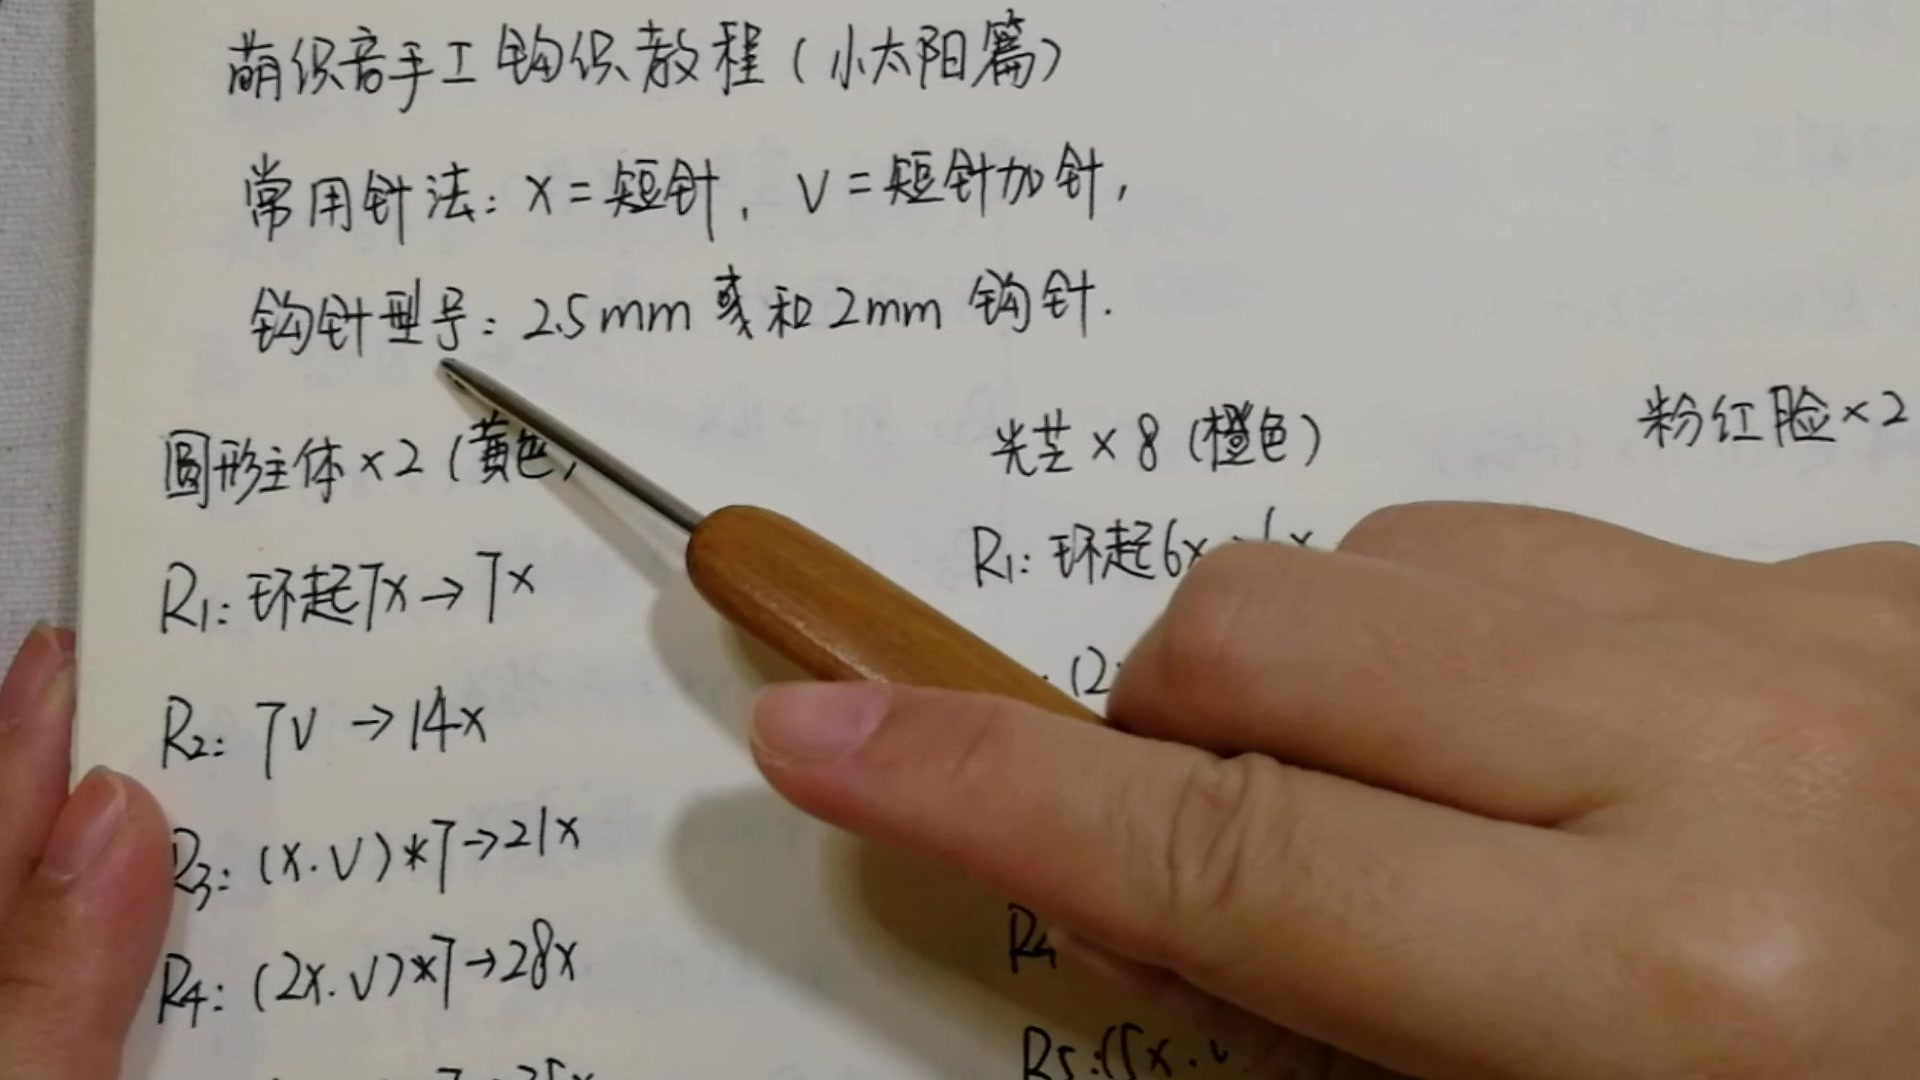 萌织音手工钩织教程(小太阳篇)
常用针法: X=短针, V=短针加针,
钩针型号: 2.5mm 或和 2mm 钩针.
圆形主体×2(黄色)
R1: 环起7X→7X
R2: 7V →14X
R3: (X.V)*7→21X
R4: (2X.V)*7→28X
光芒×8(橙色)
R1: 环起6X
(2
R4
R5:(5X.V
粉红脸×2